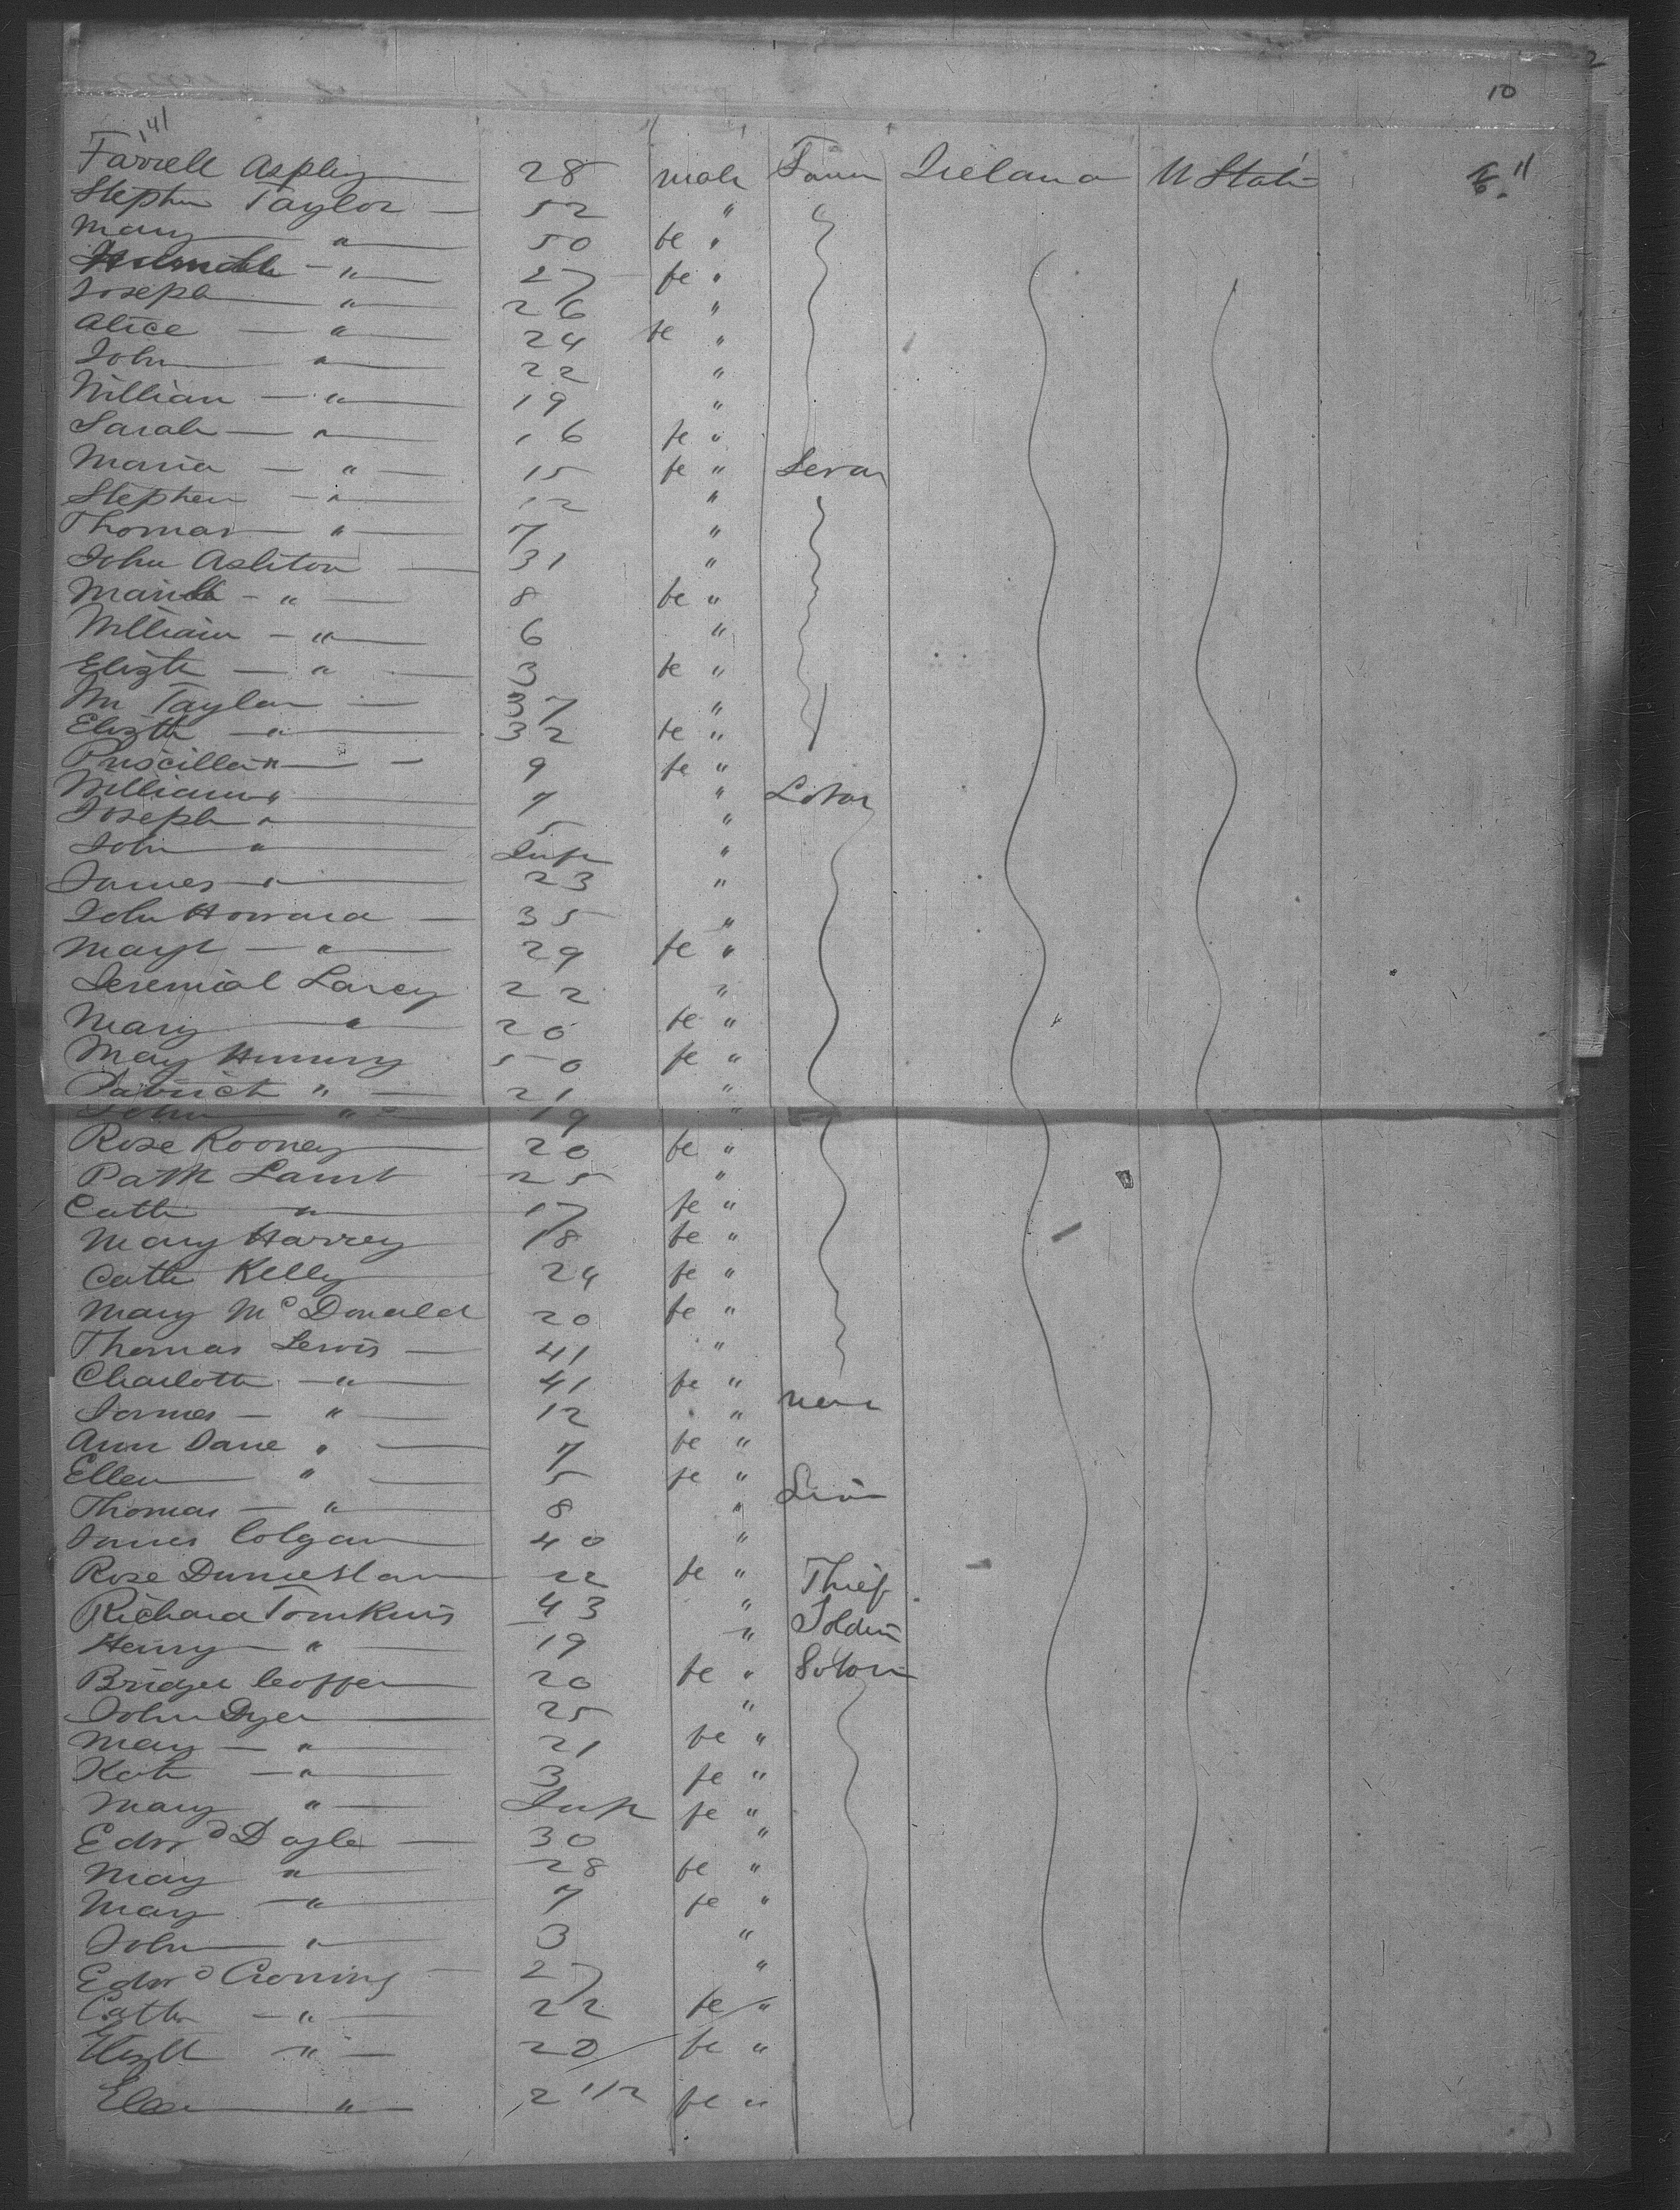 10
141
Farrell Aspley 28 male Farm Ireland U State
Stephen Taylor 52 "
Mary " 50 fe "
" 27 fe "
Joseph " 26 "
Alice " 24 fe "
John " 22 "
William " 19 "
Sarah " 16 fe "
Maria " 15 fe "
Stephen " 12 "
Thomas " 7 "
John Ashton 31 "
" 8 fe "
William " 6 "
Elizth " 3 fe "
Wm Taylor 37 "
Elizth " 32 fe "
Priscilla " 9 fe "
William " 7 "
Joseph " 5 "
John " Inft "
James " 23 "
John Howard 35 "
Margt " 29 fe "
Jeremiah Larey 22 "
Mary " 20 fe "
Mary 50 fe "
Patrick " 21 "
John " 19 "
Rose Rooney 20 fe "
Patk Lamb 25 "
Cath " 17 fe "
Mary Harvey 18 fe "
Cath Kelly 24 fe "
Mary McDonald 20 fe "
Thomas Lewis 41 "
Charlotte " 41 fe "
James " 12 "
Ann Jane " 7 fe "
Ellen " 5 fe "
Thomas " 8 "
James Colgan 40 "
Rose 22 fe " Thief
Richard Tomkins 43 " Soldier
Henry " 19 "
Bridget 20 fe "
John Dyer 25 "
Mary " 21 fe "
Kate " 3 fe "
Mary " Inft fe "
Edwd Doyle 30 "
Mary " 28 fe "
Mary " 7 fe "
John " 3 "
Edwd 27 "
Cath " 22 fe "
Elizth " 20 fe "
Ellen " 2 1/2 fe "